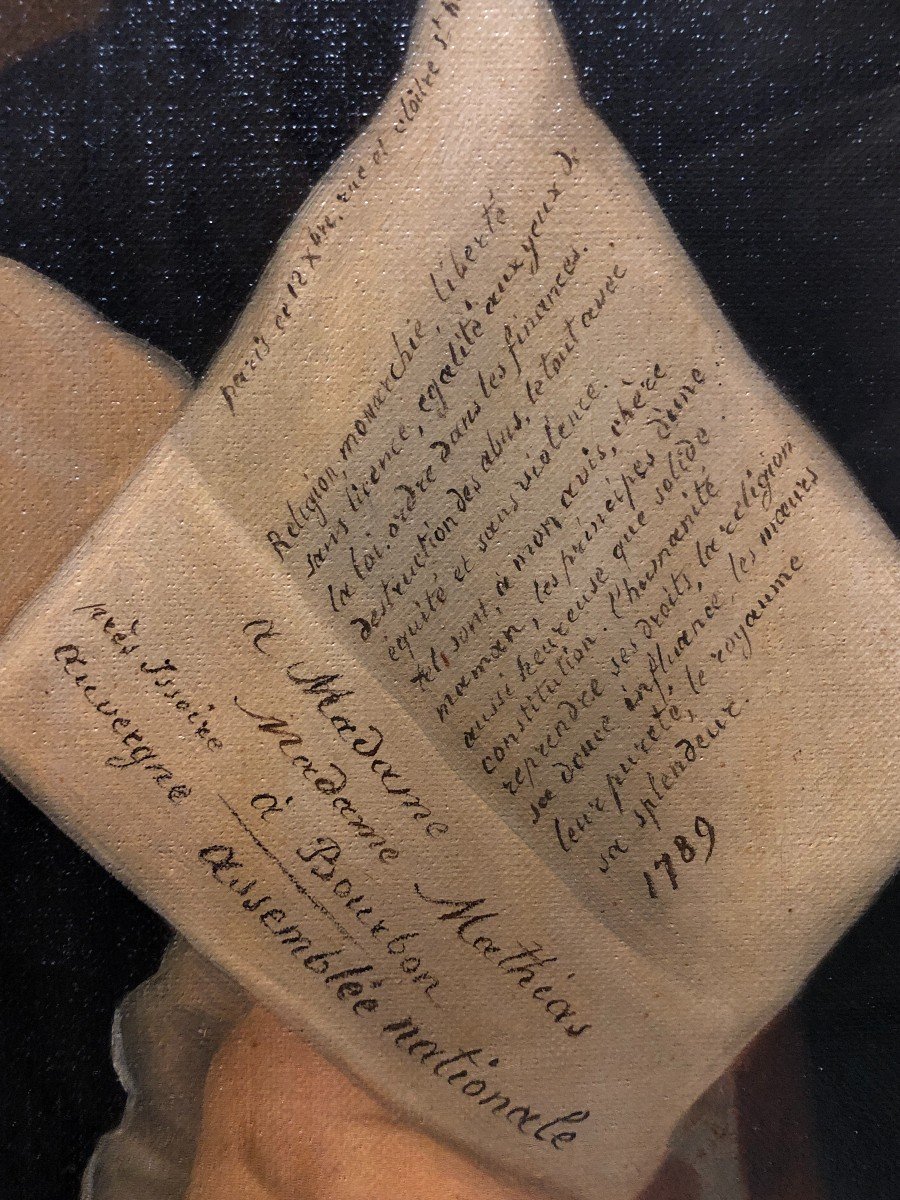 paris ce 12 xbre. rue et cloître st h
Religion, monarchie, liberté
sans licence, egalité aux yeux de
la loi. ordre dans les finances.
destruction des abus, le tout avec
équité et sans violence.
tel, sont, a mon avis, chère
maman, les principes d'une
aussi heureuse que solide
constitution. l'humanité
reprendre ses droits, la religion
sa douce influance, les mœurs
leur pureté, le royaume
sa splendeur.
1789
a Madame
Madame Mathias
à Bourbon
près Issoire
auvergne
assemblée nationale